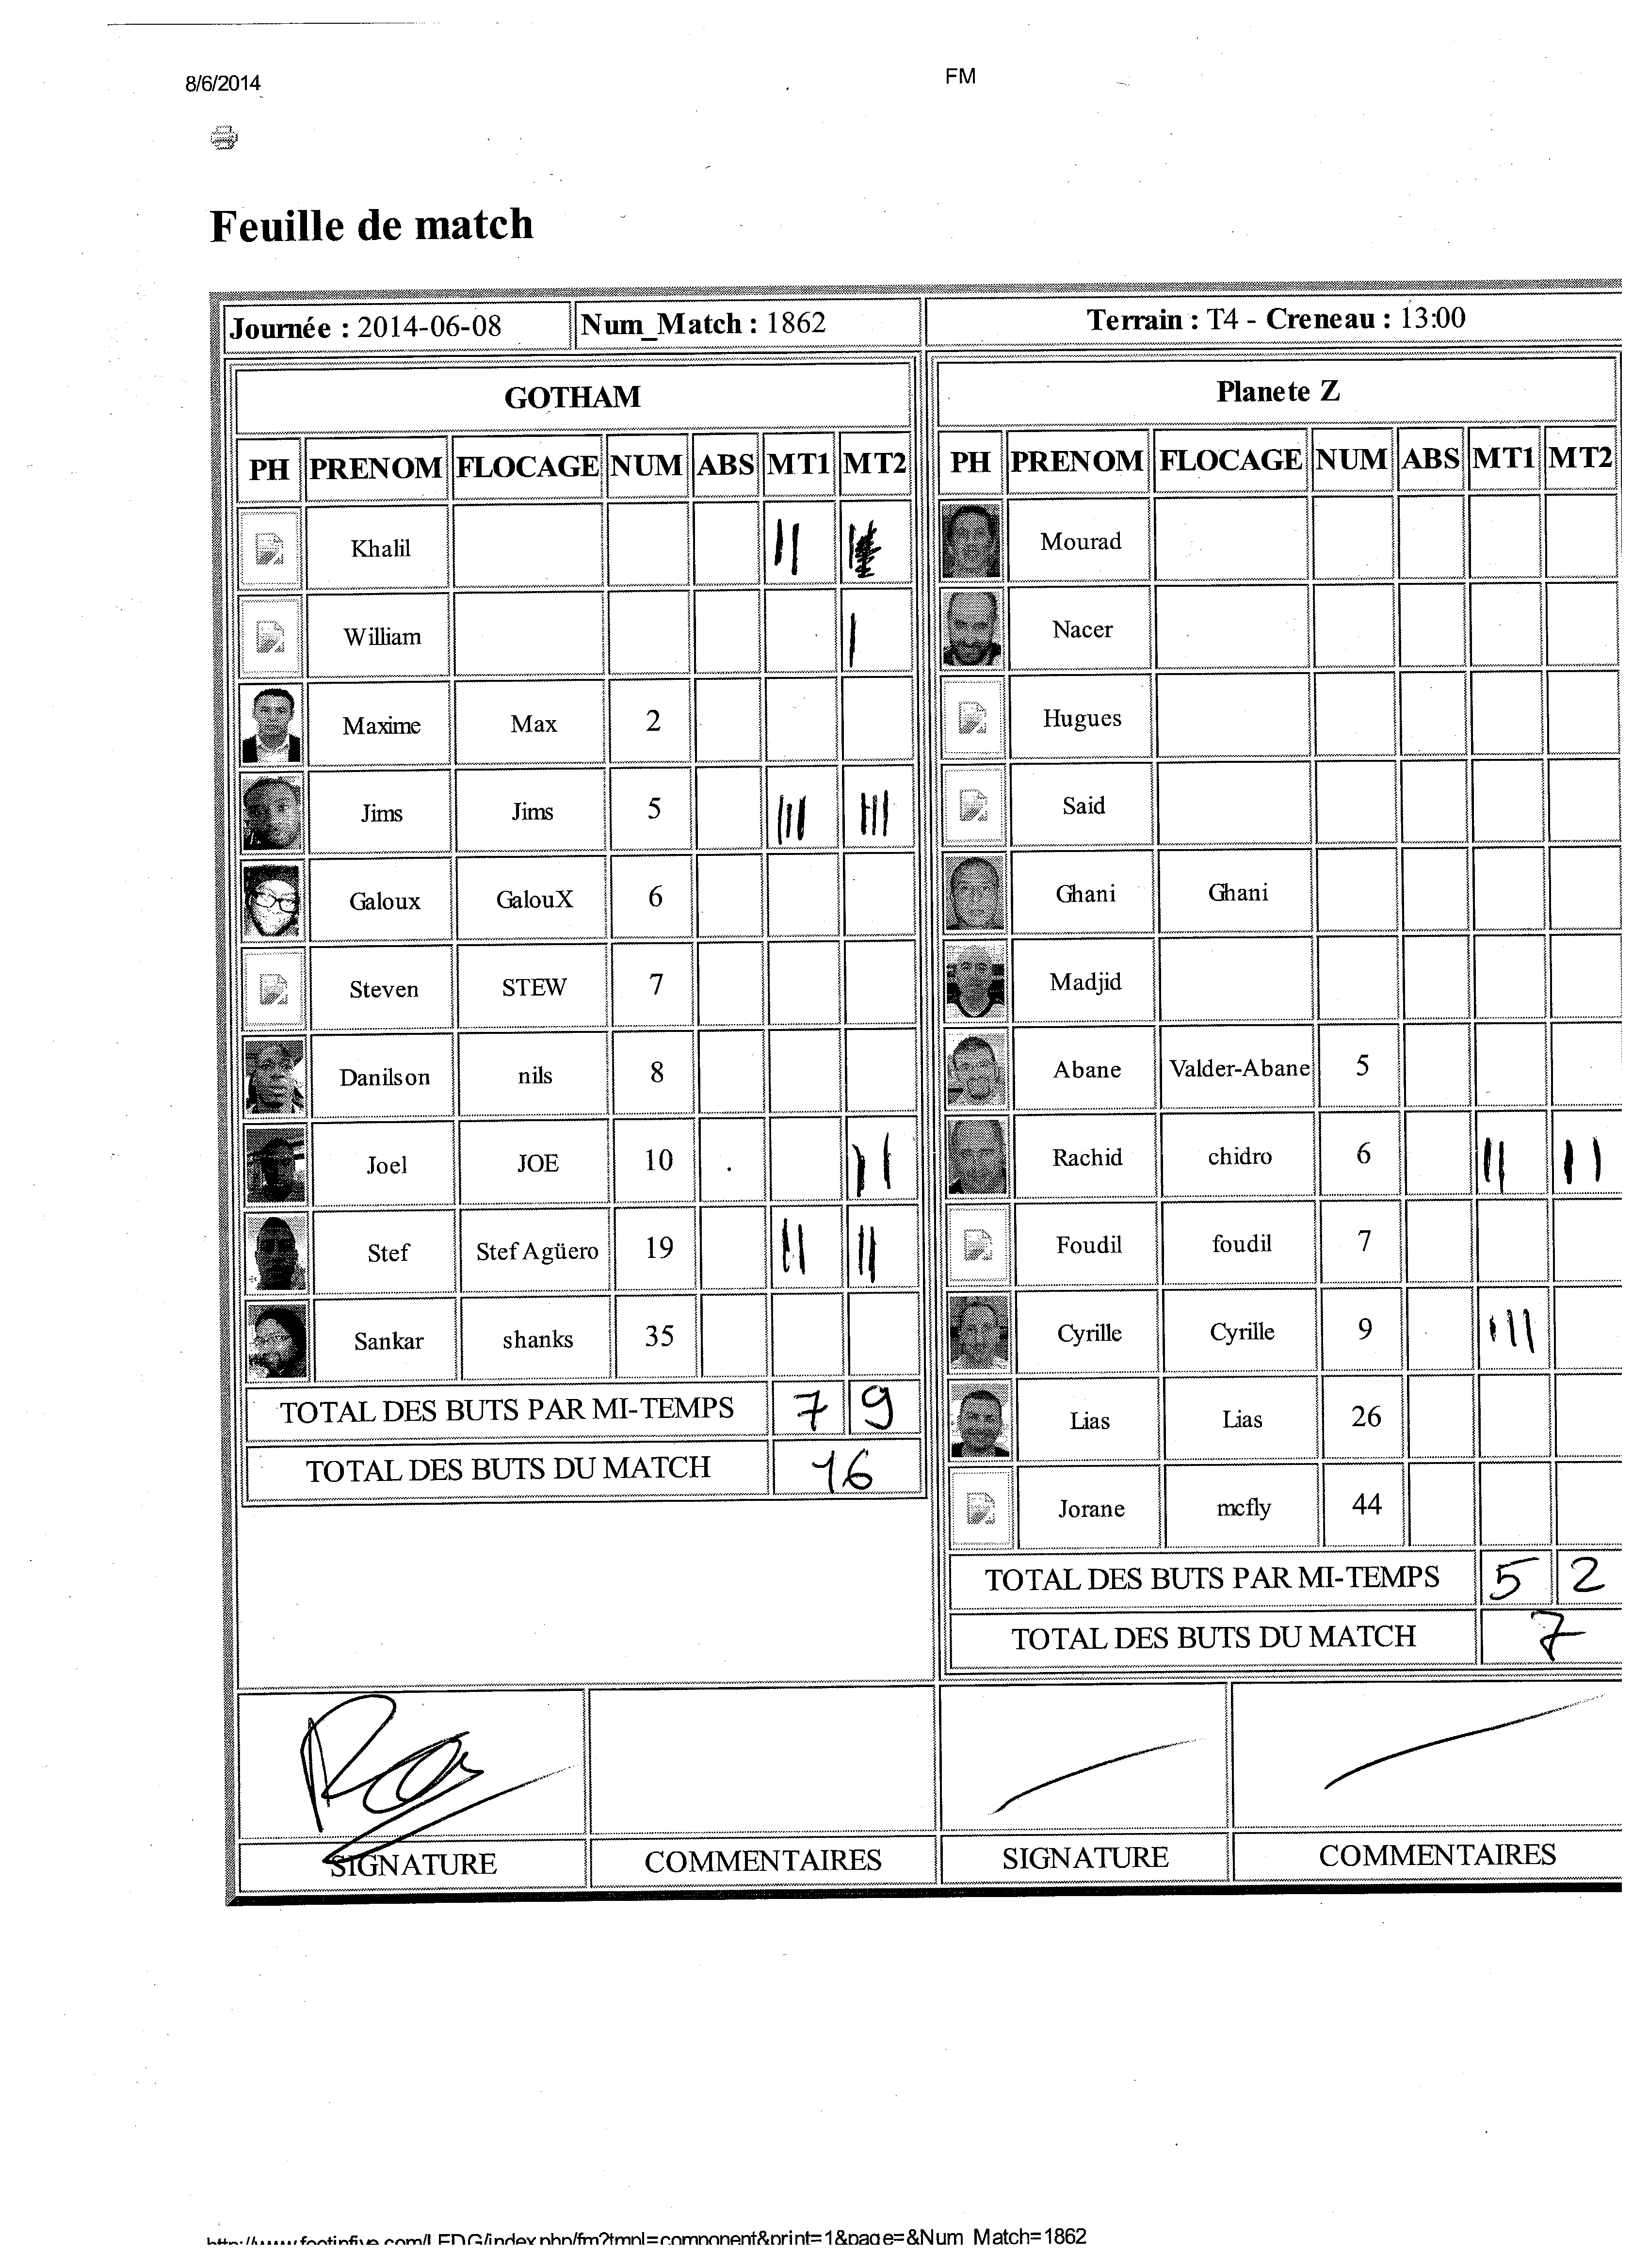 8/6/2014
FM
Feuille de match
Journée : 2014-06-08
Num_Match : 1862
Terrain : T4 - Creneau : 13:00
GOTHAM
PH PRENOM FLOCAGE NUM ABS MT1 MT2
Khalil || |
William |
Maxime Max 2
Jims Jims 5 ||| |||
Galoux GalouX 6
Steven STEW 7
Danilson nils 8
Joel JOE 10 ||
Stef Stef Agüero 19 || ||
Sankar shanks 35
TOTAL DES BUTS PAR MI-TEMPS 7 9
TOTAL DES BUTS DU MATCH 16
Planete Z
PH PRENOM FLOCAGE NUM ABS MT1 MT2
Mourad
Nacer
Hugues
Said
Ghani Ghani
Madjid
Abane Valder-Abane 5
Rachid chidro 6 || ||
Foudil foudil 7
Cyrille Cyrille 9 |||
Lias Lias 26
Jorane mcfly 44
TOTAL DES BUTS PAR MI-TEMPS 5 2
TOTAL DES BUTS DU MATCH 7
SIGNATURE COMMENTAIRES SIGNATURE COMMENTAIRES
http://www.footinfive.com/LEDG/index.php/fm?tmpl=component&print=1&page=&Num_Match=1862